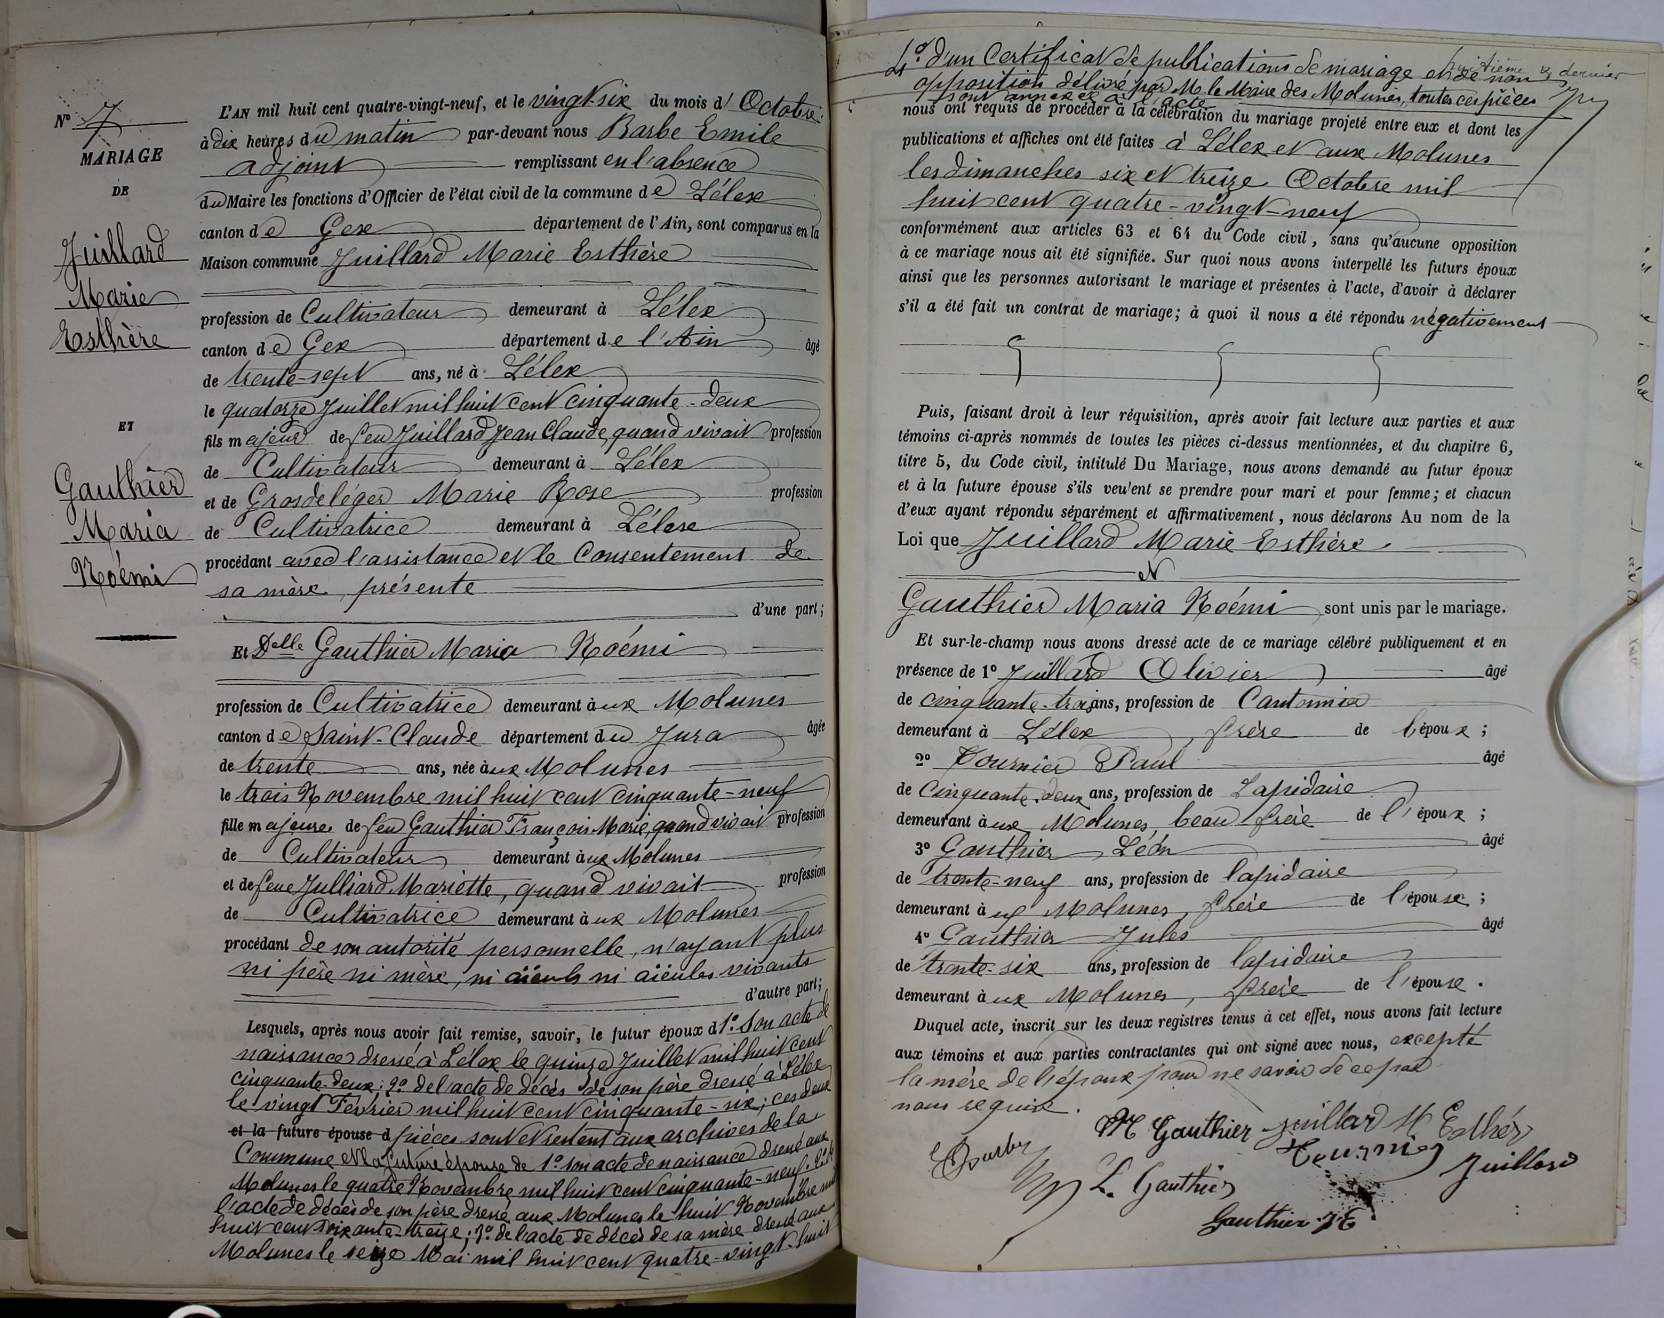 N° 7
MARIAGE
DE
Juillard
Marie
Esthère
ET
Gauthier
Maria
Noémi
L'AN mil huit cent quatre-vingt-neuf, et le vingt six du mois d' Octobre
à dix heures du matin par-devant nous Barbe Emile
adjoint remplissant en l'absence
du Maire les fonctions d'Officier de l'état civil de la commune de Lélex
canton de Gex département de l'Ain, sont comparus en la
Maison commune Juillard Marie Esthère
profession de Cultivateur demeurant à Lélex
canton de Gex département de l'Ain âgé
de trente-sept ans, né à Lélex
le quatorze Juillet mil huit cent cinquante-deux
fils majeur de feu Juillard Jean Claude, quand vivait profession
de Cultivateur demeurant à Lélex
et de Grosdeléger Marie Rose profession
de Cultivatrice demeurant à Lélex
procédant avec l'assistance et le Consentement de
sa mère, présente
d'une part;
Et Delle Gauthier Maria Noémi
profession de Cultivatrice demeurant aux Molunes
canton de Saint-Claude département du Jura âgée
de trente ans, née aux Molunes
le trois Novembre mil huit cent cinquante-neuf
fille majeure de feu Gauthier François Marie, quand vivait profession
de Cultivateur demeurant aux Molunes
et de feue Julliard Mariette, quand vivait profession
de Cultivatrice demeurant aux Molunes
procédant de son autorité personnelle, n'ayant plus
ni père ni mère, ni aïeuls ni aïeules vivants
d'autre part;
Lesquels, après nous avoir fait remise, savoir, le futur époux d 1° son acte de
naissance dressé à Lélex le quinze Juillet mil huit cent
cinquante-deux; 2° de l'acte de décès de son père dressé à Lélex
le vingt Février mil huit cent cinquante-six; ces deux
et la future épouse d pièces sont et restent aux archives de la
Commune et la future épouse de 1° son acte de naissance dressé aux
Molunes le quatre Novembre mil huit cent cinquante-neuf. 2° de
l'acte de décès de son père dressé aux Molunes le huit Novembre mil
huit cent soixante-treize; 3° de l'acte de décès de sa mère dressé aux
Molunes le seize Mai mil huit cent quatre-vingt-huit
huitième & dernier
4° d'un Certificat de publications de mariage et de non
opposition délivré par M. le Maire des Molunes, toutes ces pièces
sont annexées à l'acte
nous ont requis de procéder à la célébration du mariage projeté entre eux et dont les
publications et affiches ont été faites à Lélex et aux Molunes
les dimanches six et treize Octobre mil
huit cent quatre-vingt-neuf
conformément aux articles 63 et 64 du Code civil, sans qu'aucune opposition
à ce mariage nous ait été signifiée. Sur quoi nous avons interpellé les futurs époux
ainsi que les personnes autorisant le mariage et présentes à l'acte, d'avoir à déclarer
s'il a été fait un contrat de mariage; à quoi il nous a été répondu négativement
Puis, faisant droit à leur réquisition, après avoir fait lecture aux parties et aux
témoins ci-après nommés de toutes les pièces ci-dessus mentionnées, et du chapitre 6,
titre 5, du Code civil, intitulé Du Mariage, nous avons demandé au futur époux
et à la future épouse s'ils veulent se prendre pour mari et pour femme; et chacun
d'eux ayant répondu séparément et affirmativement, nous déclarons Au nom de la
Loi que Juillard Marie Esthère
et
Gauthier Maria Noémi sont unis par le mariage.
Et sur-le-champ nous avons dressé acte de ce mariage célébré publiquement et en
présence de 1° Juillard Olivier âgé
de cinquante-trois ans, profession de Cantonnier
demeurant à Lélex, frère de l'époux;
2° Tournier Paul âgé
de Cinquante-deux ans, profession de Lapidaire
demeurant aux Molunes, beau frère de l'époux;
3° Gauthier Léon âgé
de trente-neuf ans, profession de lapidaire
demeurant aux Molunes, frère de l'épouse;
4° Gauthier Jules âgé
de trente-six ans, profession de lapidaire
demeurant aux Molunes, frère de l'épouse.
Duquel acte, inscrit sur les deux registres tenus à cet effet, nous avons fait lecture
aux témoins et aux parties contractantes qui ont signé avec nous, excepté
la mère de l'époux pour ne savoir de ce par
nous requise.
M Gauthier Juillard M Esthér
E Barbe Tournier Juillard
L. Gauthier
Gauthier J E